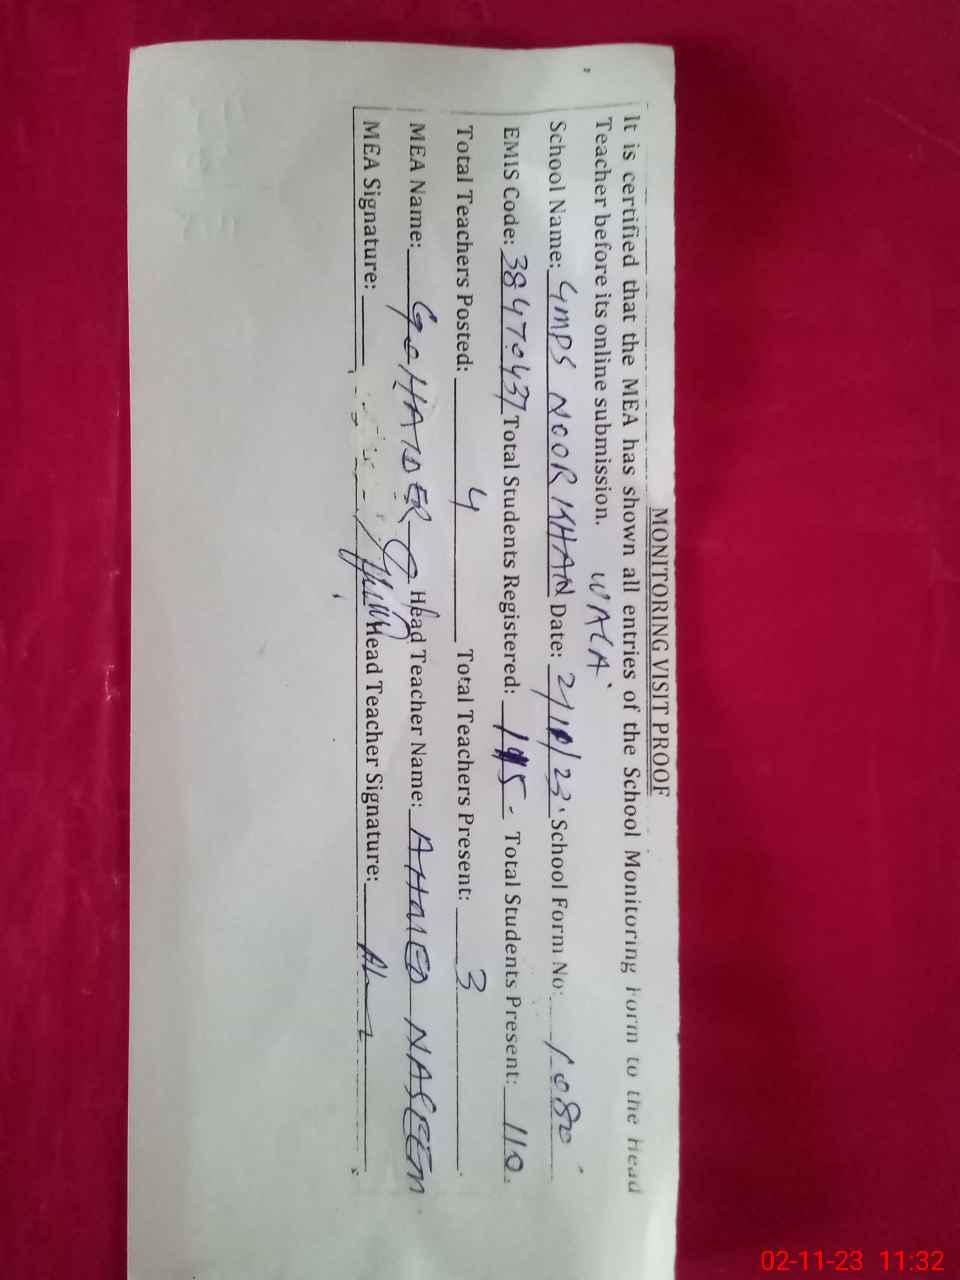 MONITORING VISIT PROOF
It is certified that the MEA has shown all entries of the School Monitoring Form to the Head
Teacher before its online submission.
WALA
School Name: GMPS NOOR KHAN Date: 2/10/23 School Form No: 1080
EMIS Code: 38470437 Total Students Registered: 115 - Total Students Present: 110.
Total Teachers Posted: 4 Total Teachers Present: 3
MEA Name: HAIDER Head Teacher Name: AHMED NASEEM
MEA Signature: Head Teacher Signature:
02-11-23 11:32